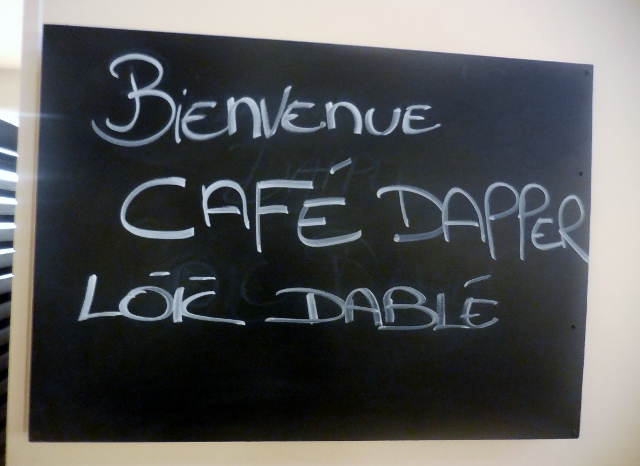 BIENVENUE
CAFÉ DAPPER
LOÏC DABLÉ